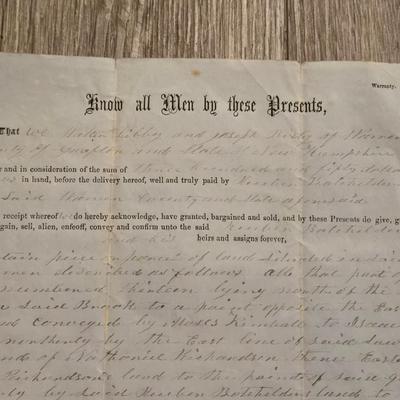 Warranty.
Know all Men by these Presents,
That We Libby and Joseph of Warren
of Grafton and State of New Hampshire
r and in consideration of the sum of three hundred and fifty dollars
in hand, before the delivery hereof, well and truly paid by Reuben Batchelder
Said Warren County and State aforesaid
receipt whereof we do hereby acknowledge, have granted, bargained and sold, and by these Presents do give, g
gain, sell, alien, enfeoff, convey and confirm unto the said Reuben Batchelder
and his heirs and assigns forever,
tain piece or parcel of land situated in said
described as follows all that part of
numbered thirteen lying north of the
said Brook to a point opposite the East
conveyed by Moses Kimball to Isaac
northerly by the East line of said
of Nathaniel Richardson thence East
Richardson's land to the point of said
by said Reuben Batchelders land to